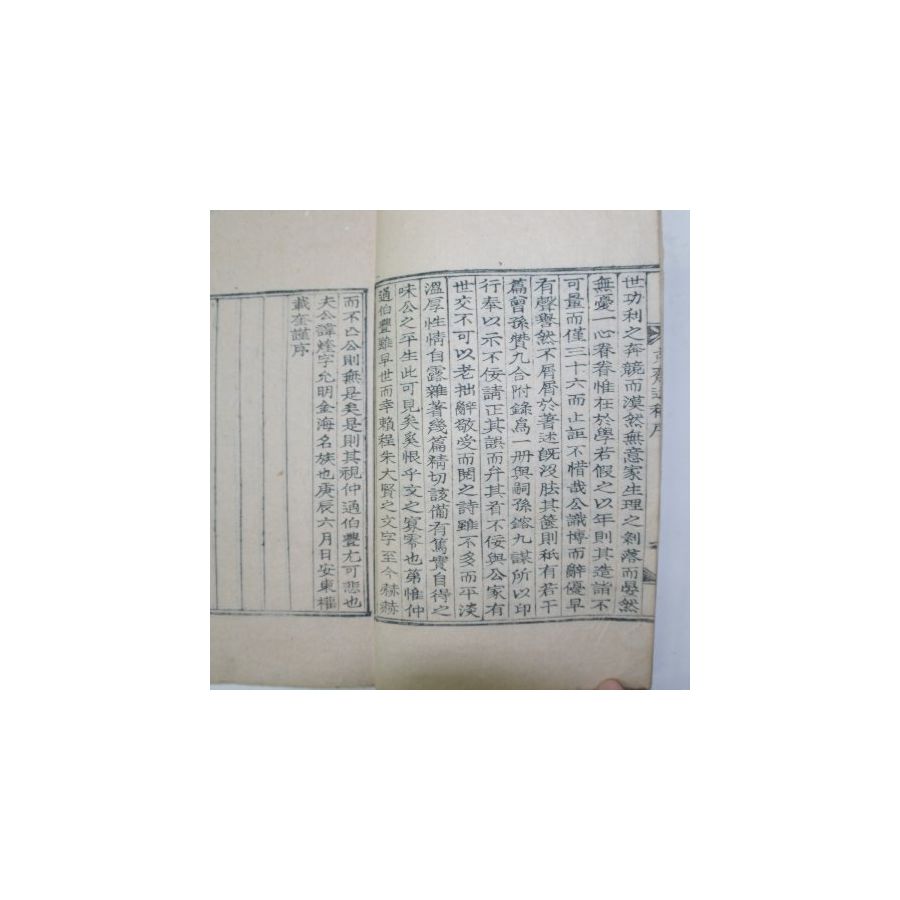 世功利之奔競而漠然無意家生理之剝落而晏然
無憂一心眷眷惟在於學若假之以年則其造詣不
可量而僅三十六而止詎不惜哉公識博而辭優早
有聲譽然不屑屑於著述旣沒胠其篋則秖有若干
篇曾孫贊九合附錄爲一册與嗣孫鎔九謀所以印
行奉以示不佞請正其誤而弁其首不佞與公家有
世交不可以老拙辭敬受而閱之詩雖不多而平淡
溫厚性情自露雜著幾篇精切該備有篤實自得之
味公之平生此可見矣奚恨乎文之寡零也第惟仲
過伯豐雖早世而幸賴程朱大賢之文字至今赫赫
而不亡公則無是矣是則其視仲過伯豐尤可悲也
夫公諱 字允明金海名族也庚辰六月日安東權
載奎謹序